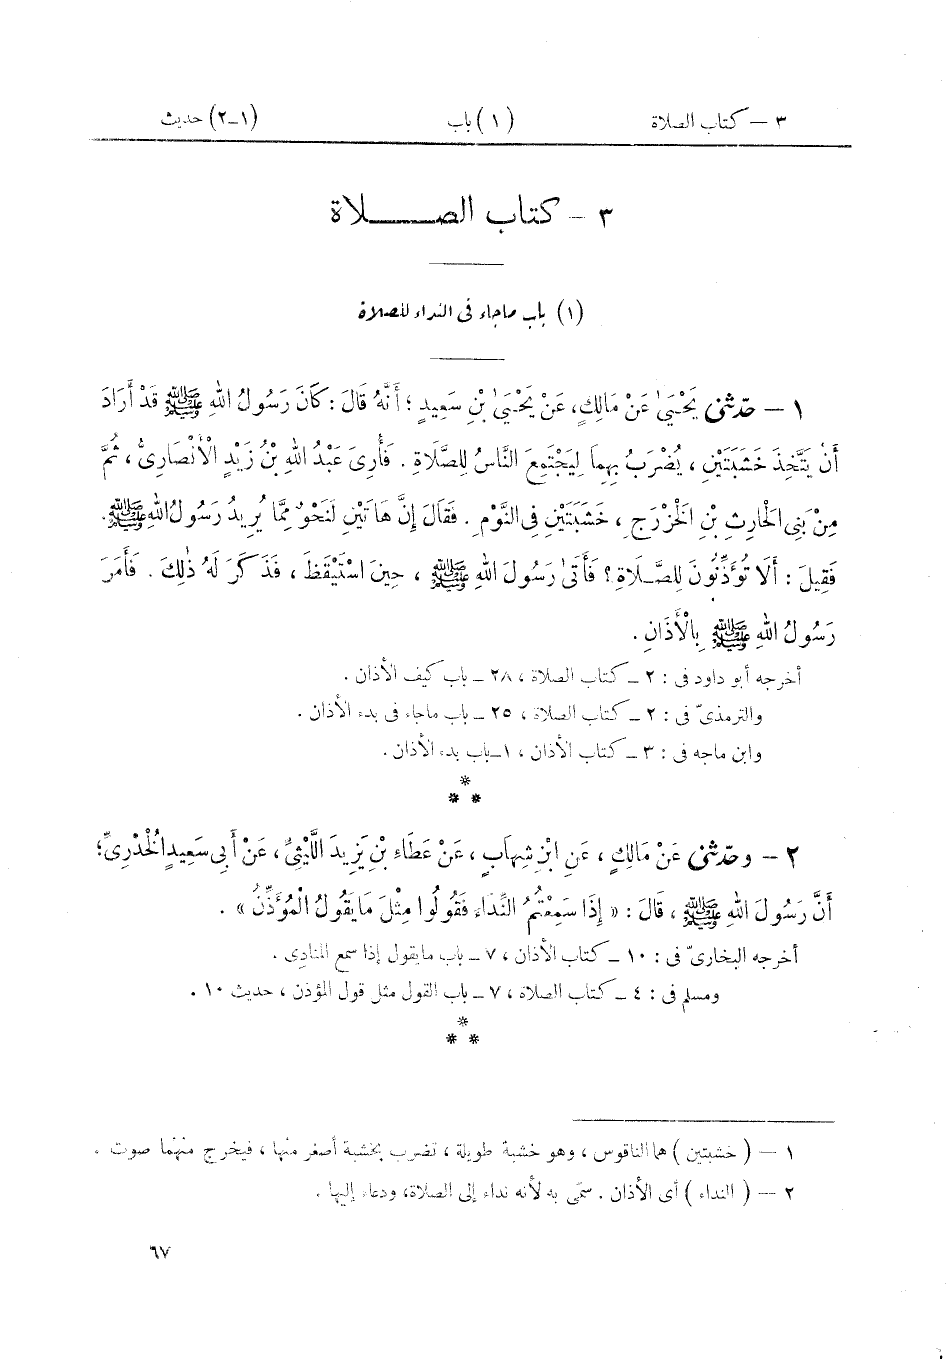 ٣ – كتاب الصلاة (١) باب (١-٢) حديث
٣ - كتاب الصـــــلاة
(١) باب ماجاء فى النداء للصلاة
١ – حدّثنى يَحْيَىٰ عَنْ مَالِكٍ، عَنْ يَحْيَىٰ بْنِ سَعِيدٍ ؛ أَنَّهُ قَالَ : كَانَ رَسُولُ اللهِ ﷺ قَدْ أَرَادَ
أَنْ يَتَّخِذَ خَشَبَتَيْنِ ، يُضْرَبُ بِهِما لِيَجْتَمِعَ النَّاسُ لِلصَّلَاةِ . فَأُرِىَ عَبْدُ اللهِ بْنُ زَيْدٍ الْأَنْصَارِىُّ ، ثُمَّ
مِنْ بَنِى الحَارِثِ بْنِ الخَزْرَجِ ، خَشَبَتَيْنِ فِى النَّوْمِ . فَقَالَ إِنَّ هَاتَيْنِ لَنَحْوٌ مِمَّا يُرِيدُ رَسُولُ اللهِ ﷺ .
فَقِيلَ : أَلَا تُؤَذِّنُونَ لِلصَّلَاةِ ؟ فَأَتَىٰ رَسُولَ اللهِ ﷺ ، حِينَ اسْتَيْقَظَ ، فَذَكَرَ لَهُ ذٰلِكَ . فَأَمَرَ
رَسُولُ اللهِ ﷺ بِالْأَذَانِ .
أخرجه أبو داود فى : ٢ – كتاب الصلاة ، ٢٨ – باب كيف الأذان .
والترمذىّ فى : ٢ – كتاب الصلاة ، ٢٥ – باب ماجاء فى بدء الأذان .
وابن ماجه فى : ٣ – كتاب الأذان ، ١ – باب بدء الأذان .
*
* *
٢ – وحدّثنى عَنْ مَالِكٍ ، عَنِ ابْنِ شِهَابٍ ، عَنْ عَطَاءِ بْنِ يَزِيدَ اللَّيْثِىِّ ، عَنْ أَبِى سَعِيدٍ الْخُدْرِىِّ ؛
أَنَّ رَسُولَ اللهِ ﷺ ، قَالَ : « إِذَا سَمِعْتُمُ النِّدَاءَ فَقُولُوا مِثْلَ مَا يَقُولُ الْمُؤَذِّنُ » .
أخرجه البخارىّ فى : ١٠ – كتاب الأذان ، ٧ – باب مايقول إذا سمع المنادى .
ومسلم فى : ٤ – كتاب الصلاة ، ٧ – باب القول مثل قول المؤذن ، حديث ١٠ .
*
* *
١ – ( خشبتين ) هما الناقوس ، وهو خشبة طويلة ، تضرب بخشبة أصغر منها ، فيخرج منهما صوت .
٢ – ( النداء ) أى الأذان . سمّى به لأنه نداء إلى الصلاة، ودعاء إليها .
٦٧